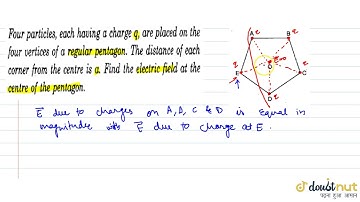 Four particles, each having a charge q, are placed on the
four vertices of a regular pentagon. The distance of each
corner from the centre is a. Find the electric field at the
centre of the pentagon.
A
q
B
q
E
C
q
D
q
E due to charges on A, B, C & D is equal in
magnitude with E due to charge at E.
doubtnut
पढ़ना हुआ आसान